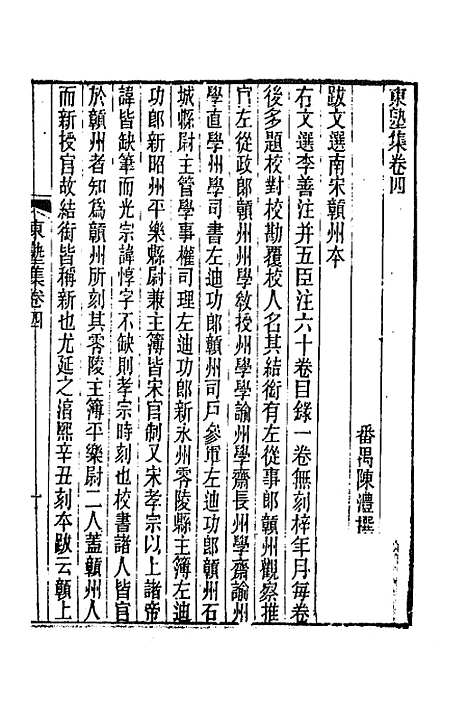 東塾集卷四
番禺陳澧撰
跋文選南宋贛州本
右文選李善注并五臣注六十卷目錄一卷無刻梓年月每卷
後多題校對校勘覆校人名其結銜有左從事郎贛州觀察推
官左從政郎贛州州學敎授州學學諭州學齋長州學齋諭州
學直學州學司書左迪功郎贛州司戸參軍左迪功郎贛州石
城縣尉主管學事權司理左迪功郎新永州零陵縣主簿左迪
功郎新昭州平樂縣尉兼主簿皆宋官制又宋孝宗以上諸帝
諱皆缺筆而光宗諱惇字不缺則孝宗時刻也校書諸人皆官
於贛州者知爲贛州所刻其零陵主簿平樂尉二人蓋贛州人
而新授官故結銜皆稱新也尤延之淳熙辛丑刻本跋云贛上
東塾集卷四
一